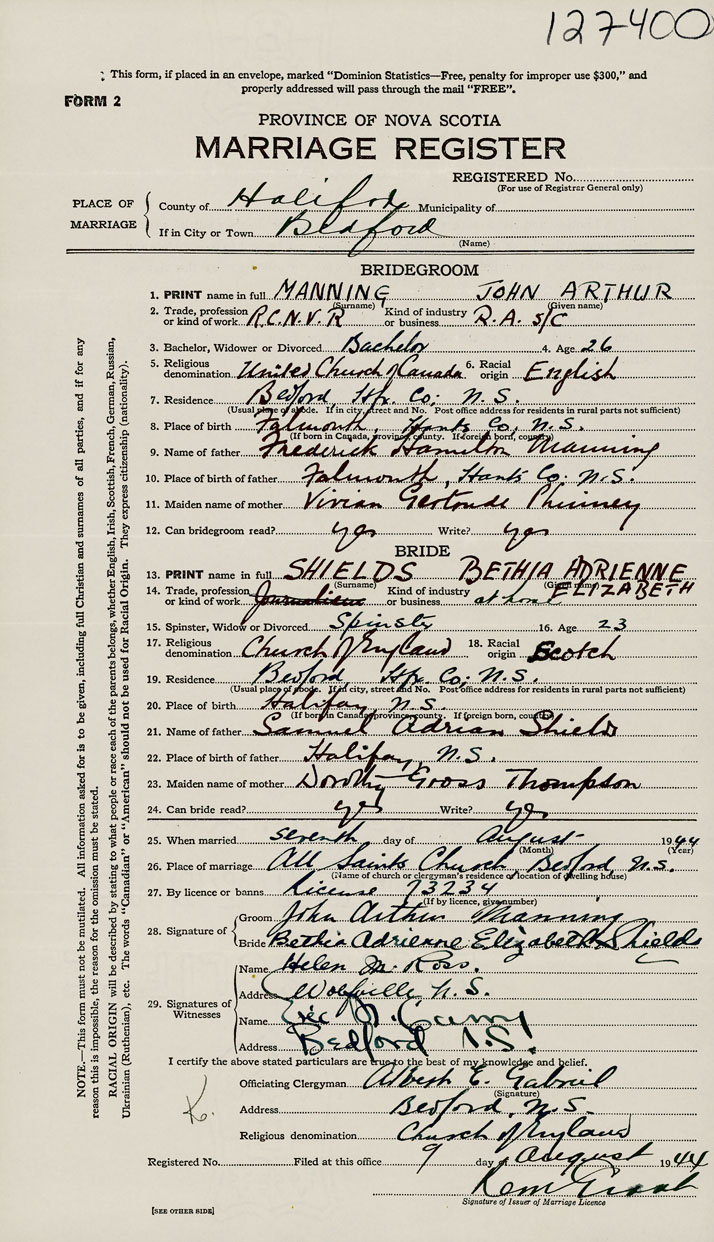 127400
This form, if placed in an envelope, marked "Dominion Statistics—Free, penalty for improper use $300," and
properly addressed will pass through the mail "FREE".
FORM 2
PROVINCE OF NOVA SCOTIA
MARRIAGE REGISTER
REGISTERED No.
(For use of Registrar General only)
PLACE OF MARRIAGE
County of Halifax Municipality of
If in City or Town Bedford
(Name)
BRIDEGROOM
1. PRINT name in full MANNING JOHN ARTHUR
(Surname) (Given name)
2. Trade, profession or kind of work R.C.N.V.R Kind of industry or business R.A. S/C
3. Bachelor, Widower or Divorced Bachelor 4. Age 26
5. Religious denomination United Church of Canada 6. Racial origin English
7. Residence Bedford, Hfx. Co; N.S.
(Usual place of abode. If in city, street and No. Post office address for residents in rural parts not sufficient)
8. Place of birth Falmouth, Hants Co, N.S.
(If born in Canada, province, county. If foreign born, country)
9. Name of father Frederick Hamilton Manning
10. Place of birth of father Falmouth, Hants Co; N.S.
11. Maiden name of mother Vivian Gertrude Phinney
12. Can bridegroom read? yes Write? yes
BRIDE
13. PRINT name in full SHIELDS BETHIA ADRIENNE
(Surname) (Given name) ELIZABETH
14. Trade, profession or kind of work Kind of industry or business at home
15. Spinster, Widow or Divorced Spinster 16. Age 23
17. Religious denomination Church of England 18. Racial origin Scotch
19. Residence Bedford, Hfx. Co; N.S.
(Usual place of abode. If in city, street and No. Post office address for residents in rural parts not sufficient)
20. Place of birth Halifax, N.S.
(If born in Canada, province, county. If foreign born, country)
21. Name of father Samuel Adrian Shields
22. Place of birth of father Halifax, N.S.
23. Maiden name of mother Dorothy Gross Thompson
24. Can bride read? yes Write? yes
25. When married seventh day of August 1944
(Month) (Year)
26. Place of marriage All Saints Church, Bedford, N.S.
(Name of church or clergyman's residence or location of dwelling house)
27. By licence or banns License 73234
(If by licence, give number)
28. Signature of
Groom John Arthur Manning
Bride Bethia Adrienne Elizabeth Shields
29. Signatures of Witnesses
Name Helen M. Ross.
Address Wolfville N.S.
Name
Address Bedford N.S.
I certify the above stated particulars are true to the best of my knowledge and belief.
Officiating Clergyman Albert E. Gabriel
(Signature)
Address Bedford, N.S.
Religious denomination Church of England
Registered No. Filed at this office 9 day of August 1944
Signature of Issuer of Marriage Licence
[SEE OTHER SIDE]
NOTE.—This form must not be mutilated. All information asked for is to be given, including full Christian and surnames of all parties, and if for any
reason this is impossible, the reason for the omission must be stated.
RACIAL ORIGIN will be described by stating to what people or race each of the parents belongs, whether English, Irish, Scottish, French, German, Russian,
Ukrainian (Ruthenian), etc. The words "Canadian" or "American" should not be used for Racial Origin. They express citizenship (nationality).